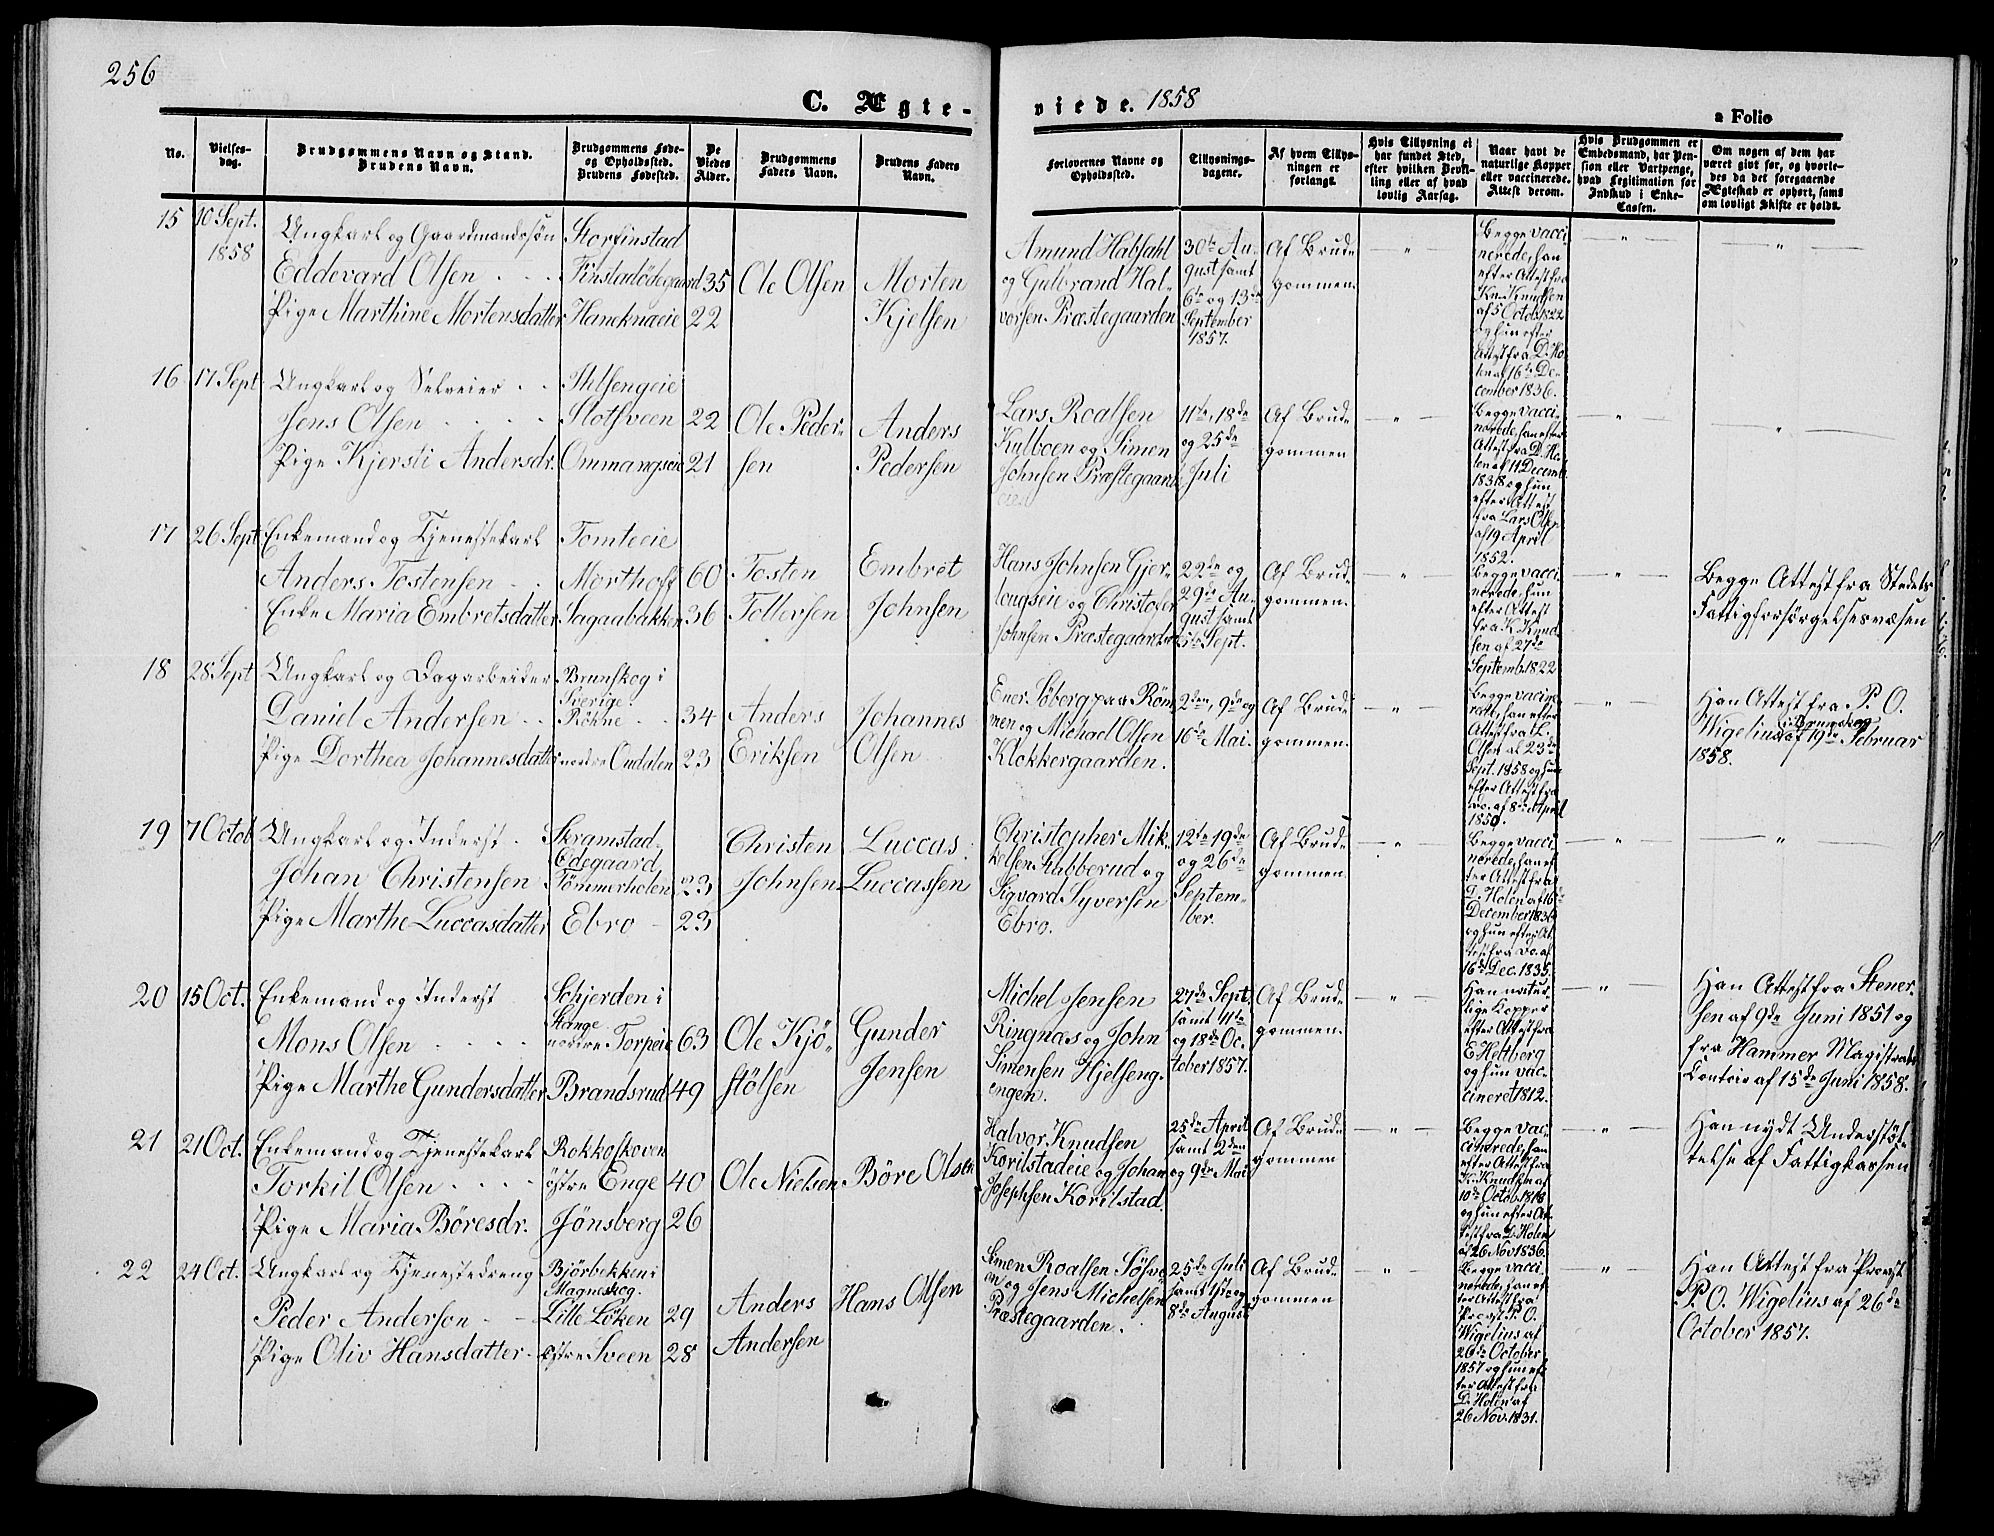 256
C. Ægte-
viede. 1858
a Folio
No.
Vielses-
dag.
Brudgommens Navn og Stand.
Brudens Navn.
Brudgommens Føde-
og Opholdssted.
Brudens Fødested.
De
Viedes
Alder.
Brudgommens
Faders Navn.
Brudens Faders
Navn.
Forlovernes Navne og
Opholdssted.
Tillysnings-
dagene.
Af hvem Tillys-
ningen er
forlangt.
Hvis Tillysning ei
har fundet Sted,
efter hvilken Bevil-
ling eller af hvad
lovlig Aarsag.
Naar havt de
naturlige Kopper
eller vaccinerede.
Attest derom.
Hvis Brudgommen er
Embedsmand, har Pen-
sion eller Vartpenge,
hvad Legitimation for
Indskud i Enke-
Cassen.
Om nogen af dem har
været gift før, og hvorle-
des da det foregaaende
Ægteskab er ophørt, samt
om lovligt Skifte er holdt.
15
10 Sept.
1858
Ungkarl og Gaardmandssøn
Eddevard Olsen
Pige Marthine Mortensdatter
Storfinstad
Finstadødegaard
Haneknæeie
35
22
Ole Olsen
Morten
Kjelsen
Amund Habsahl
og Gulbrand Hal-
vorsen Præstegaarden
30te Au-
gust samt
6te og 13de
September
1857.
Af Brud-
gommen.
Begge vacci-
nerede, han
efter Attest fra
Kn. Knudsen
af 5 Octob 1822
og hun efter
Attest fra D. Ho-
len af 16te De-
cember 1836.
16
17 Sept
Ungkarl og Selveier
Jens Olsen
Pige Kjersti Andersdr.
Ihlsengeie
Slotsveen
Ommangseie
22
21
Ole Peder-
sen
Anders
Pedersen
Lars Roalsen
Kulboen og Simen
Johnsen Præstegaards
eie
11te, 18de
og 25de
Juli
Af Brud-
gommen
Begge vacci-
nerede, han efter
Attest fra D. Ho-
len af 11 Decemb.
1838 og hun
efter Attest
fra Lars Olsen
af 19 April
1852.
17
26 Sept
Enkemand og Tjenestekarl
Anders Tostensen
Enke Maria Embretsdatter
Tomteeie
Morthoff
Sagaabakken
60
36
Tosten
Tollersen
Embret
Johnsen
Hans Johnsen Gjer-
lougseie og Christofer
Johnsen Præstegaarden
22de og
29de Au-
gust samt
5te Sept.
Af Brud-
gommen.
Begge vacci-
nerede, hun
efter Attest
fra K. Knud-
sen af 27de
Septemb. 1822
Begge Attest fra Stedets
Fattigforsørgelsesvæsen
18
28 Sept
Ungkarl og Dagarbeider
Daniel Andersen
Pige Dorthea Johannesdatter
Brunskog i
Sverige.
Røhne
nordre Ondalen
34
23
Anders
Eriksen
Johannes
Olsen
Ener. Søberg paa Røm
men og Michael Olsen
Klokkergaarden.
2den, 9de og
16de Mai.
Af Brud-
gommen.
Begge vacine-
rede, han efter
Attest fra L.
Olsen af 23de
Sept. 1858 og hun
efter Attest fra
Do. af 8de April
1850.
Han Attest fra P. O.
Wigelius i Brunskog
af 19de Februar
1858.
19
7 Octob
Ungkarl og Inderst
Johan Christensen
Pige Marthe Luccasdatter
Skramstad-
Ødegaard
Tømmerholen
Ebro
23
23
Christen
Johnsen
Luccas
Luccassen
Christopher Mik-
kelsen Habberud og
Sigvard Syversen
Ebro.
12te 19de
og 26de
Septem-
ber.
Af Brud-
gommen
Begge vacci-
nerede, han ef-
ter Attest fra
D. Holen af 16de
December 1836
og hun efter At-
test fra Do. af
16de Dec. 1835.
20
15 Oct.
Enkemand og Inderst
Mons Olsen
Pige Marthe Gundersdatter
Schjerden i
Stange
nordre Torpeie
Brandsrud
63
49
Ole Kjø-
stølsen
Gunder
Jensen
Michel Jensen
Ringnæs og John
Simensen Hjelseng-
engen.
27de Sept.
samt 11te
og 18de Oc-
tober 1857.
Af Brud-
gommen.
Han natur-
lige Kopper
efter Attest fra
E Heltberg
og hun vac-
cineret 1812.
Han Attest fra Stener-
sen af 9de Juni 1851 og
fra Hammer Magistrats
Contoir af 15de Juni 1858.
21
21 Oct.
Enkemand og Tjenestekarl
Torkil Olsen
Pige Maria Børesdr.
Rokkoskoven
østre Enge
Jønsberg
40
26
Ole Nielsen
Børe Olsen
Halvor Knudsen
Korilstadeie og Johan
Josephsen Korilstad.
25de April
samt 2den
og 9de Mai
Af Brud-
gommen
Begge vac-
cinerede, han
efter Attest fra
K. Knudsen af
10de Octob. 1818
og hun efter At-
test fra D. Holen
af 26 Nov 1836.
Han nydt Understøt-
telse af Fattigkassen
22
24 Oct.
Ungkarl og Tjenestedreng
Peder Anderson
Pige Oliv Hansdatter
Bjørbekken i
Magneskog.
Lille Løken
østre Sveen
29
28
Anders
Andersen
Hans Olsen
Simen Roalsen Søsve
en og Jens Michelsen
Præstegaarden.
25de Juli
samt 1ste og
8de August
Af Brud-
gommen
Begge vacci-
nerede, han ef-
ter Attest fra
Provst P. O.
Wigelius af
26de October
1857 og hun ef-
ter Attest fra
D. Holen af
26 Nov. 1831.
Han Attest fra Provst
P. O. Wigelius af 26de
October 1857.